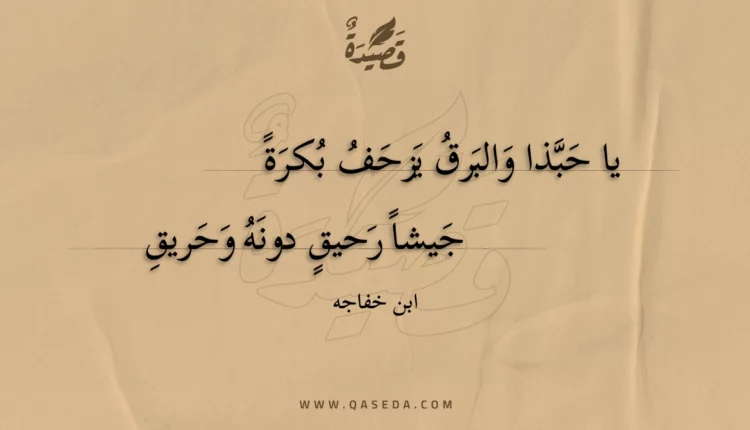 قَصِيدَةٌ
يا حَبَّذا وَالبَرقُ يَزحَفُ بُكرَةً
جَيشاً رَحيقٍ دونَهُ وَحَريقِ
ابن خفاجه
WWW.QASEDA.COM